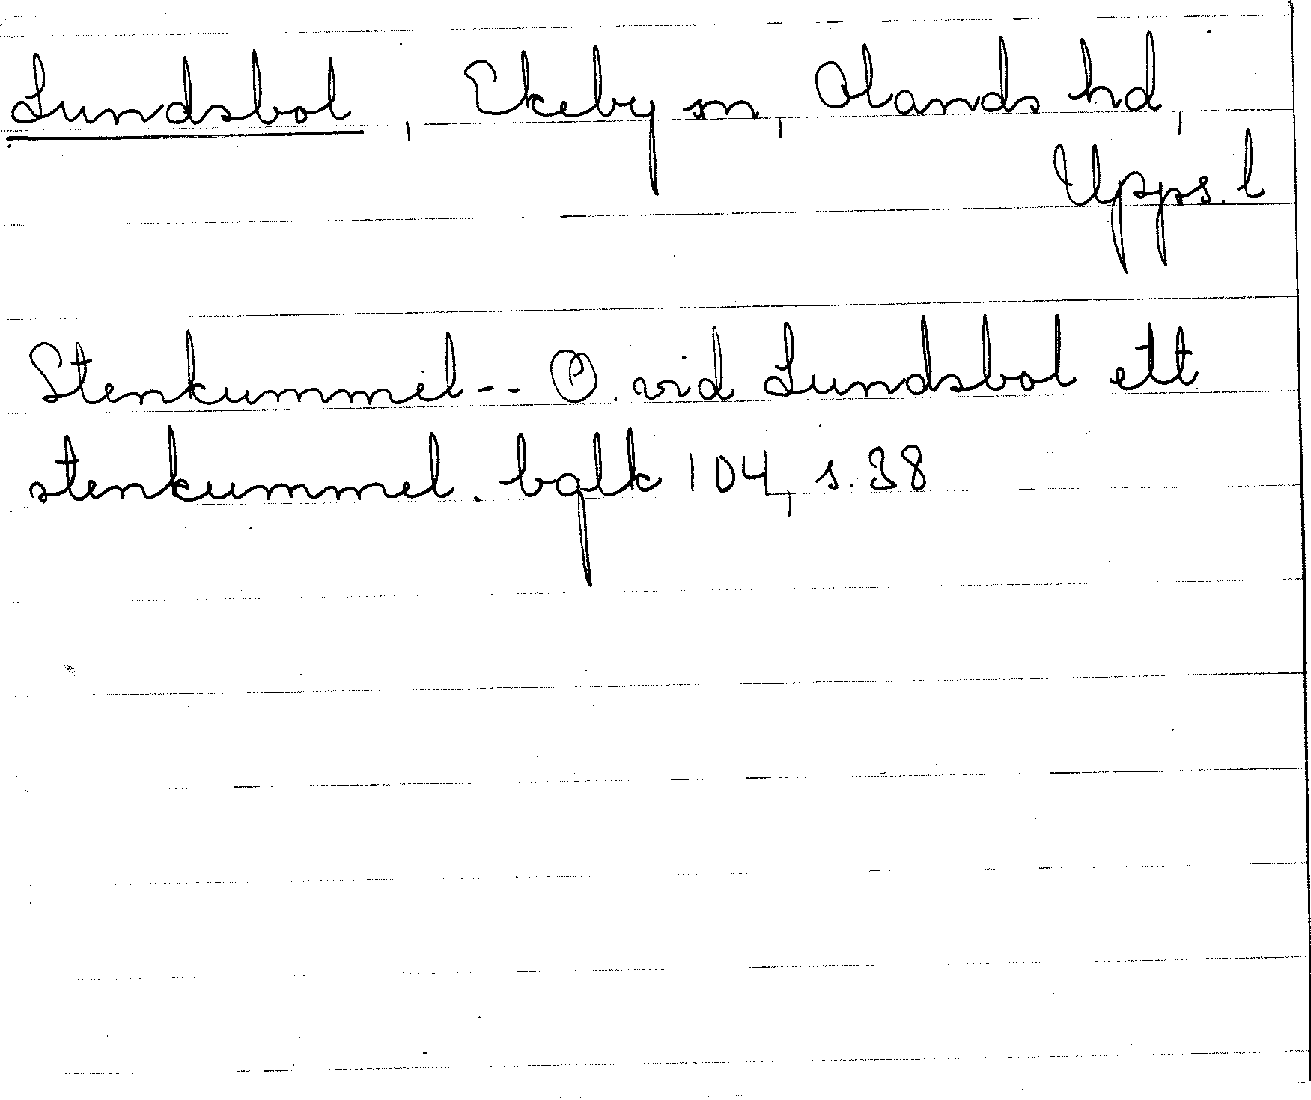 Lundsbol, Ekeby sn, Olands hd,
Upps. l
Stenkummel -- O. vid Lundsbol ett
stenkummel. bglk 104, s. 38